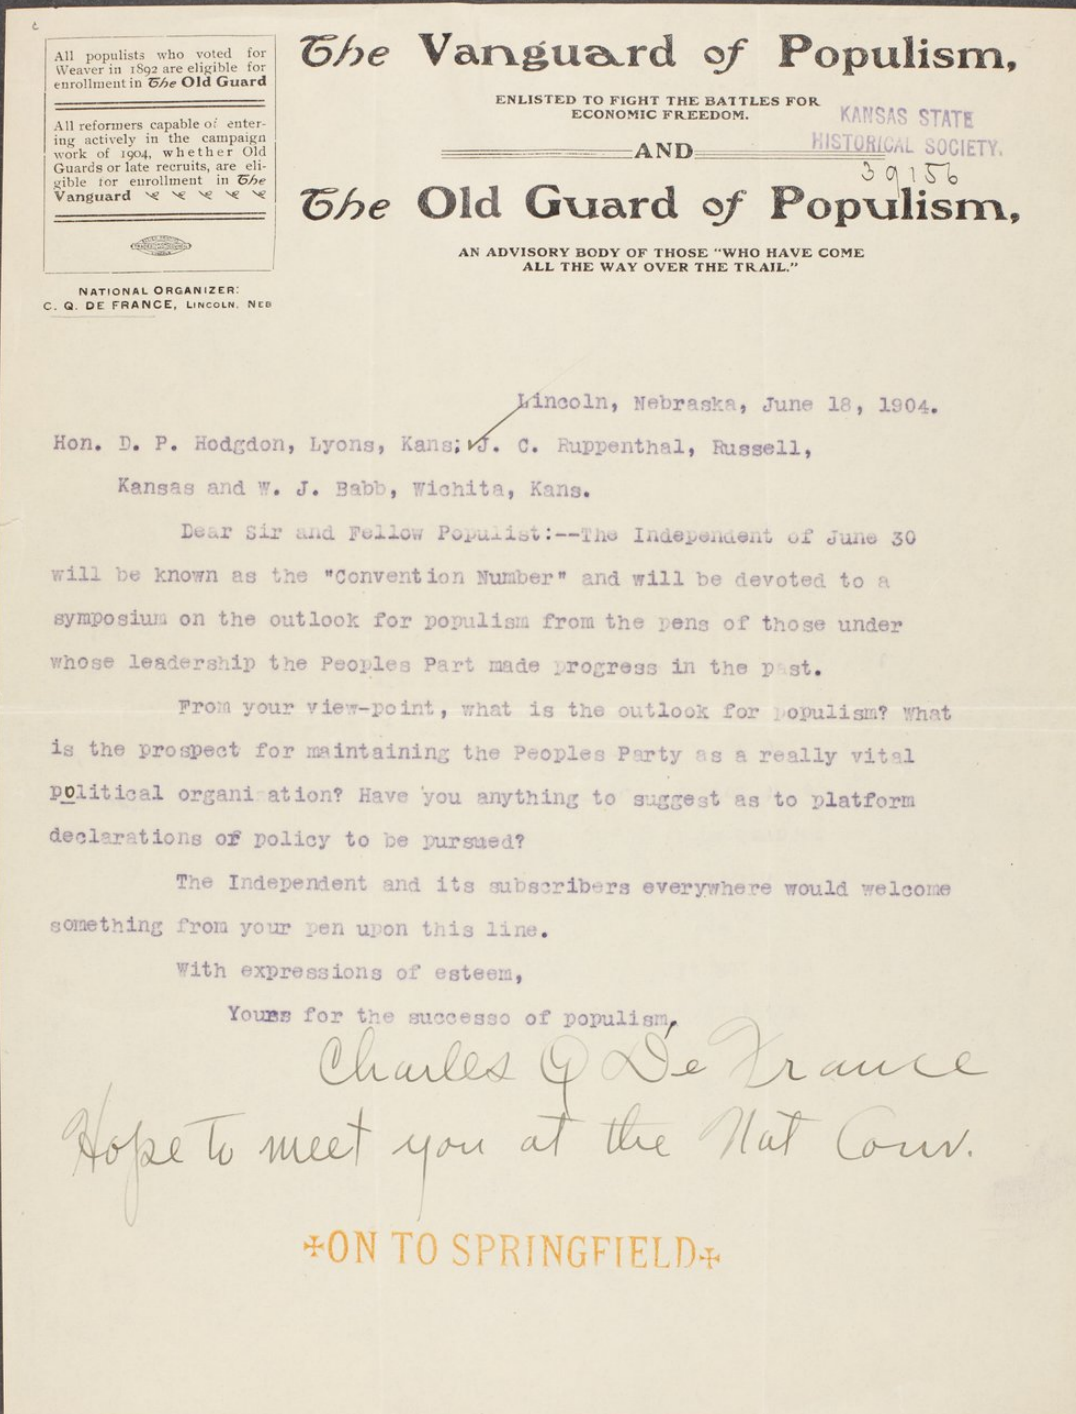 All populists who voted for
Weaver in 1892 are eligible for
enrollment in The Old Guard
All reformers capable of enter-
ing actively in the campaign
work of 1904, whether Old
Guards or late recruits, are eli-
gible for enrollment in The
Vanguard
NATIONAL ORGANIZER:
C. Q. DE FRANCE, LINCOLN, NEB
The Vanguard of Populism,
ENLISTED TO FIGHT THE BATTLES FOR
ECONOMIC FREEDOM.
KANSAS STATE
HISTORICAL SOCIETY.
39156
AND
The Old Guard of Populism,
AN ADVISORY BODY OF THOSE "WHO HAVE COME
ALL THE WAY OVER THE TRAIL."
Lincoln, Nebraska, June 18, 1904.
Hon. D. P. Hodgdon, Lyons, Kans; J. C. Ruppenthal, Russell,
Kansas and W. J. Babb, Wichita, Kans.
Dear Sir and Fellow Populist:--The Independent of June 30
will be known as the "Convention Number" and will be devoted to a
symposium on the outlook for populism from the pens of those under
whose leadership the Peoples Part made progress in the past.
From your view-point, what is the outlook for populism? What
is the prospect for maintaining the Peoples Party as a really vital
political organi ation? Have you anything to suggest as to platform
declarations or policy to be pursued?
The Independent and its subscribers everywhere would welcome
something from your pen upon this line.
With expressions of esteem,
Yours for the successo of populism,
Charles Q De France
Hope to meet you at the Nat Conv.
ON TO SPRINGFIELD